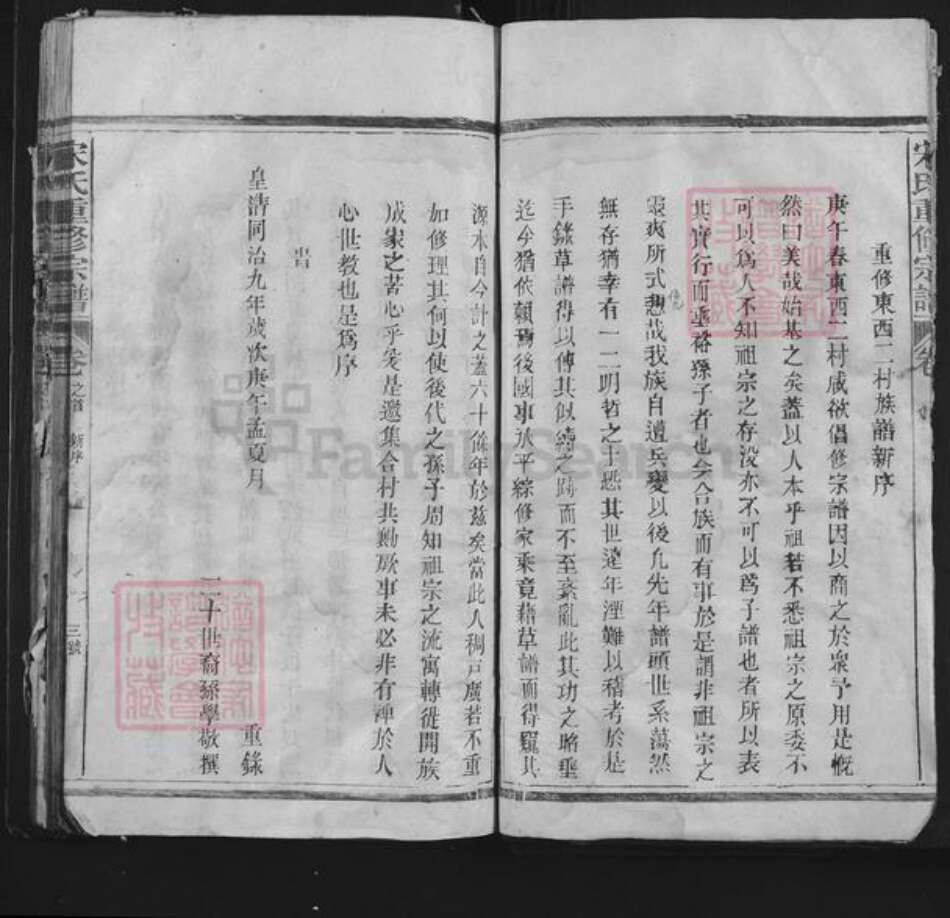 重修東西二村族譜新序
庚午春東西二村咸欲倡修宗譜因以商之於衆予用是慨
然曰美哉始基之矣蓋以人本乎祖若不悉祖宗之原委不
可以爲人不知祖宗之存没亦不可以爲子譜也者所以表
其實行而垂裕孫子者也會合族而有事於是謂非祖宗之
靈爽所式憑哉我族自遭兵變以後凡先年譜頭世系蕩然
無存猶幸有一二明哲之士恐其世遠年湮難以稽考於是
手錄草譜得以傳其似續之蹟而不至紊亂此其功之昭垂
迄今猶依賴焉後國事放平綜修家乘竟藉草譜而得窺其
源本自今計之蓋六十餘年於茲矣當此人稠戸廣若不重
如修理其何以使後代之孫子周知祖宗之流寓轉徙開族
成家之苦心乎爰是邀集合村共勷厥事未必非有裨於人
心世教也是爲序
旹
皇清同治九年歲次庚午孟夏月
重錄
二十世裔孫學敬撰
宋氏重修宗譜 卷之首 新序 三號
宋氏重修宗譜 卷
FamilySearch